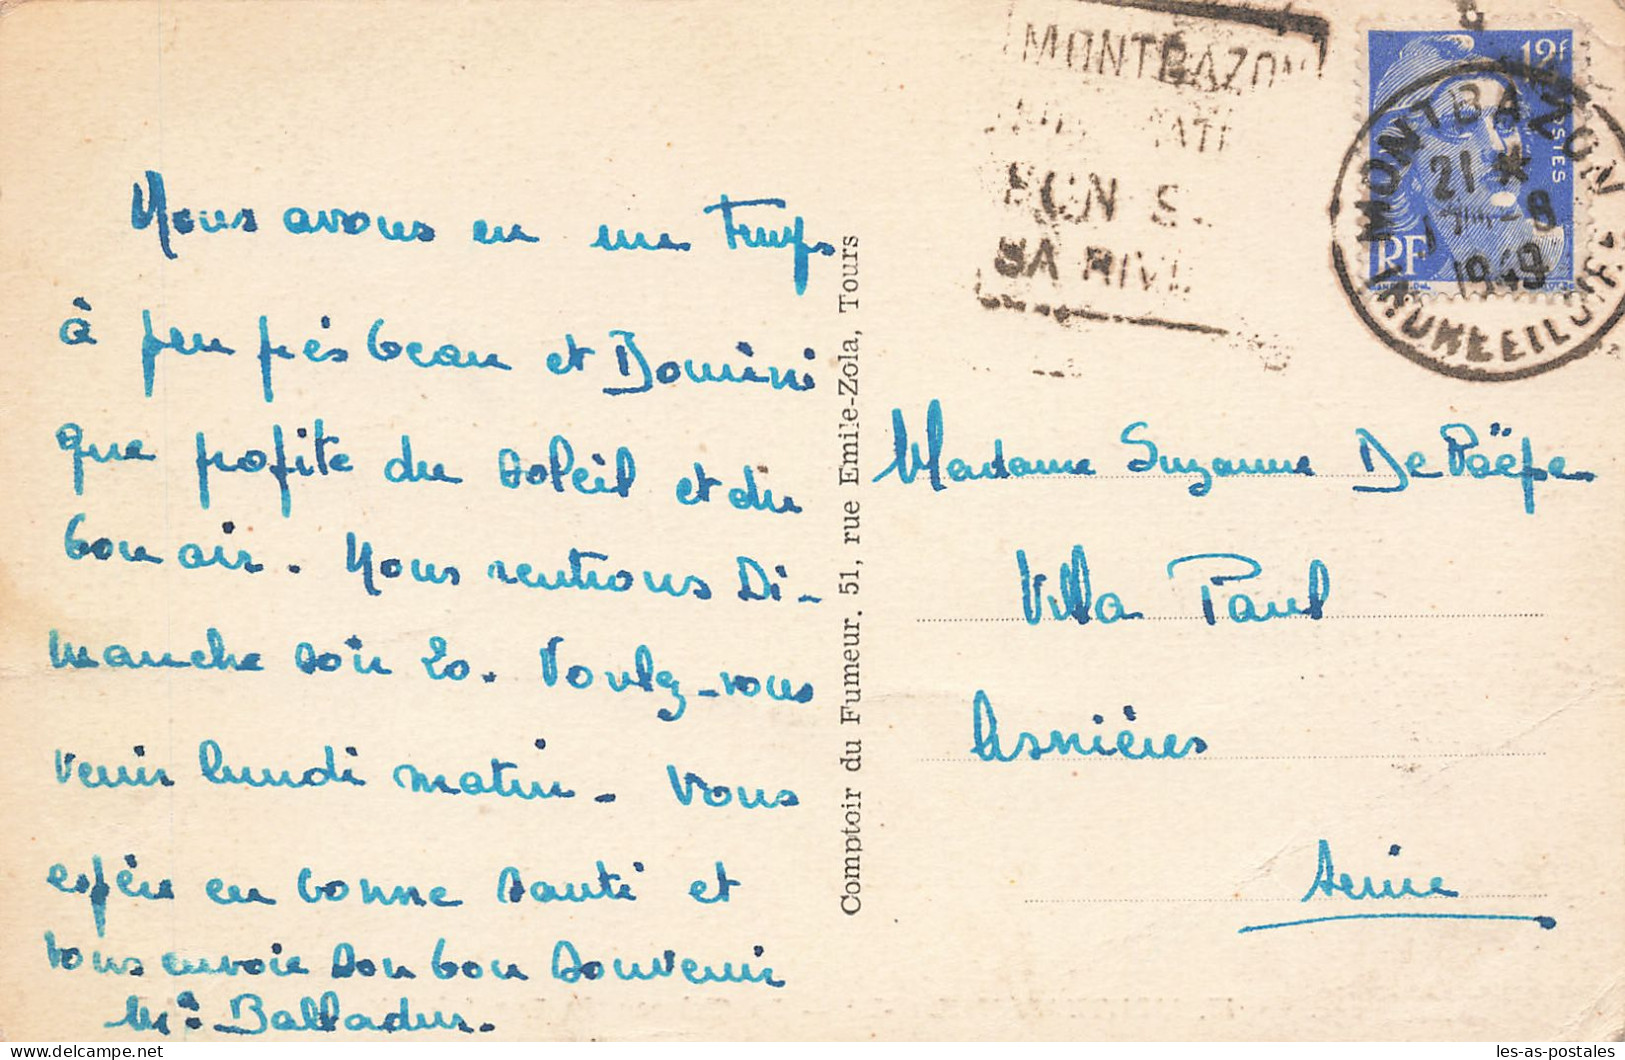 Nous avons eu un temps
à peu près beau et Domini
que profite du soleil et du
bon air. Nous rentrons Di-
manche soir 20. Voulez-vous
venir lundi matin. Vous
espère en bonne santé et
vous envoie son bon souvenir
Mª Balladur.
Comptoir du Fumeur. 51, rue Emile-Zola, Tours
MONTBAZON
BON S
SA RIVI
12f
POSTES
RF
MONTBAZON
21 *
-8
1949
INDRE ET LOIRE
Madame Suzanne De Paëpe
Villa Paul
Asnières
Seine
les-as-postales